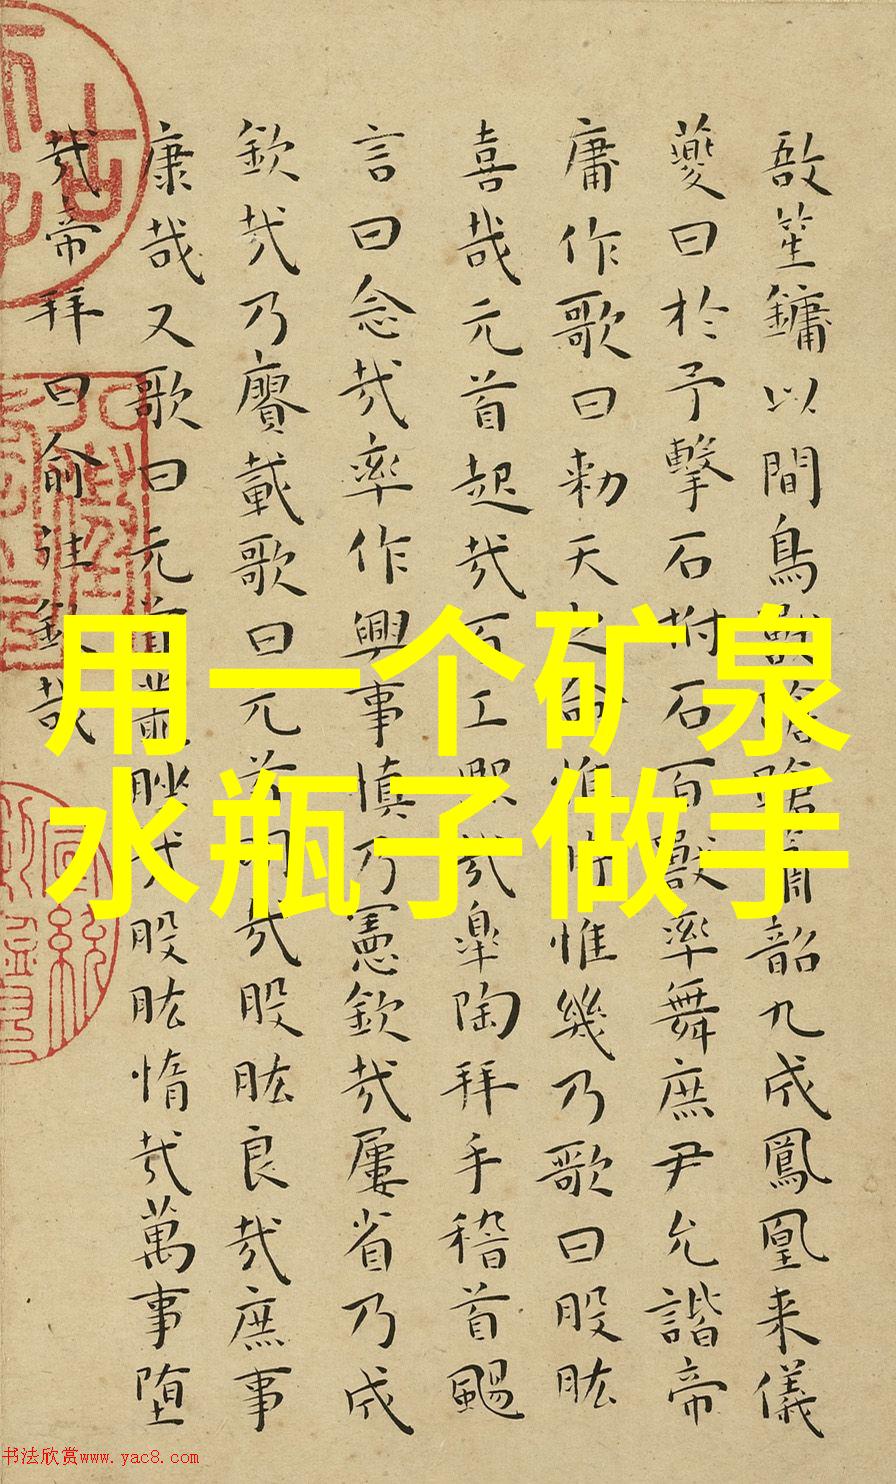 敔笙鏞以間鳥獸蹌蹌簫韶九成鳳凰来儀
夔曰於予擊石拊石百獸率舞庶尹允諧帝
庸作歌曰勑天之命惟時惟幾乃歌曰股肱
喜哉元首起哉百工熙哉皐陶拜手稽首颺
言曰念哉率作興事慎乃憲欽哉屢省乃成
欽哉乃賡載歌曰元首明哉股肱良哉庶事
康哉又歌曰元首叢脞哉股肱惰哉萬事堕
哉帝拜曰俞往欽哉
用一个矿泉
水瓶子做手
书法欣赏www.yac8.com